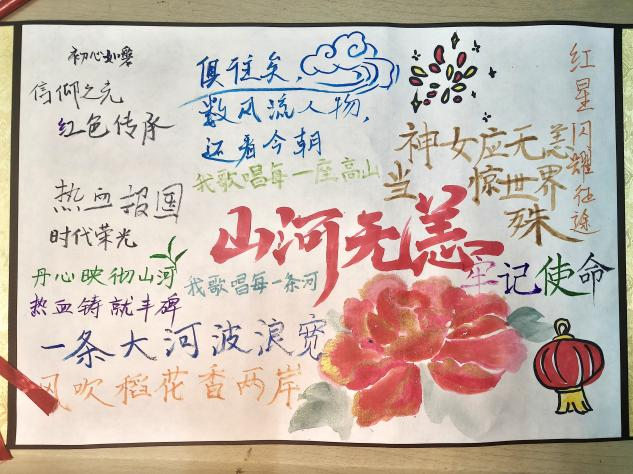 初心如磐
信仰之光
红色传承
俱往矣，
数风流人物，
还看今朝
我歌唱每一座高山
神女应无恙
当惊世界
殊
红星闪耀征途
热血报国
时代荣光
山河无恙
丹心映彻山河
我歌唱每一条河
牢记使命
热血铸就丰碑
一条大河波浪宽
风吹稻花香两岸